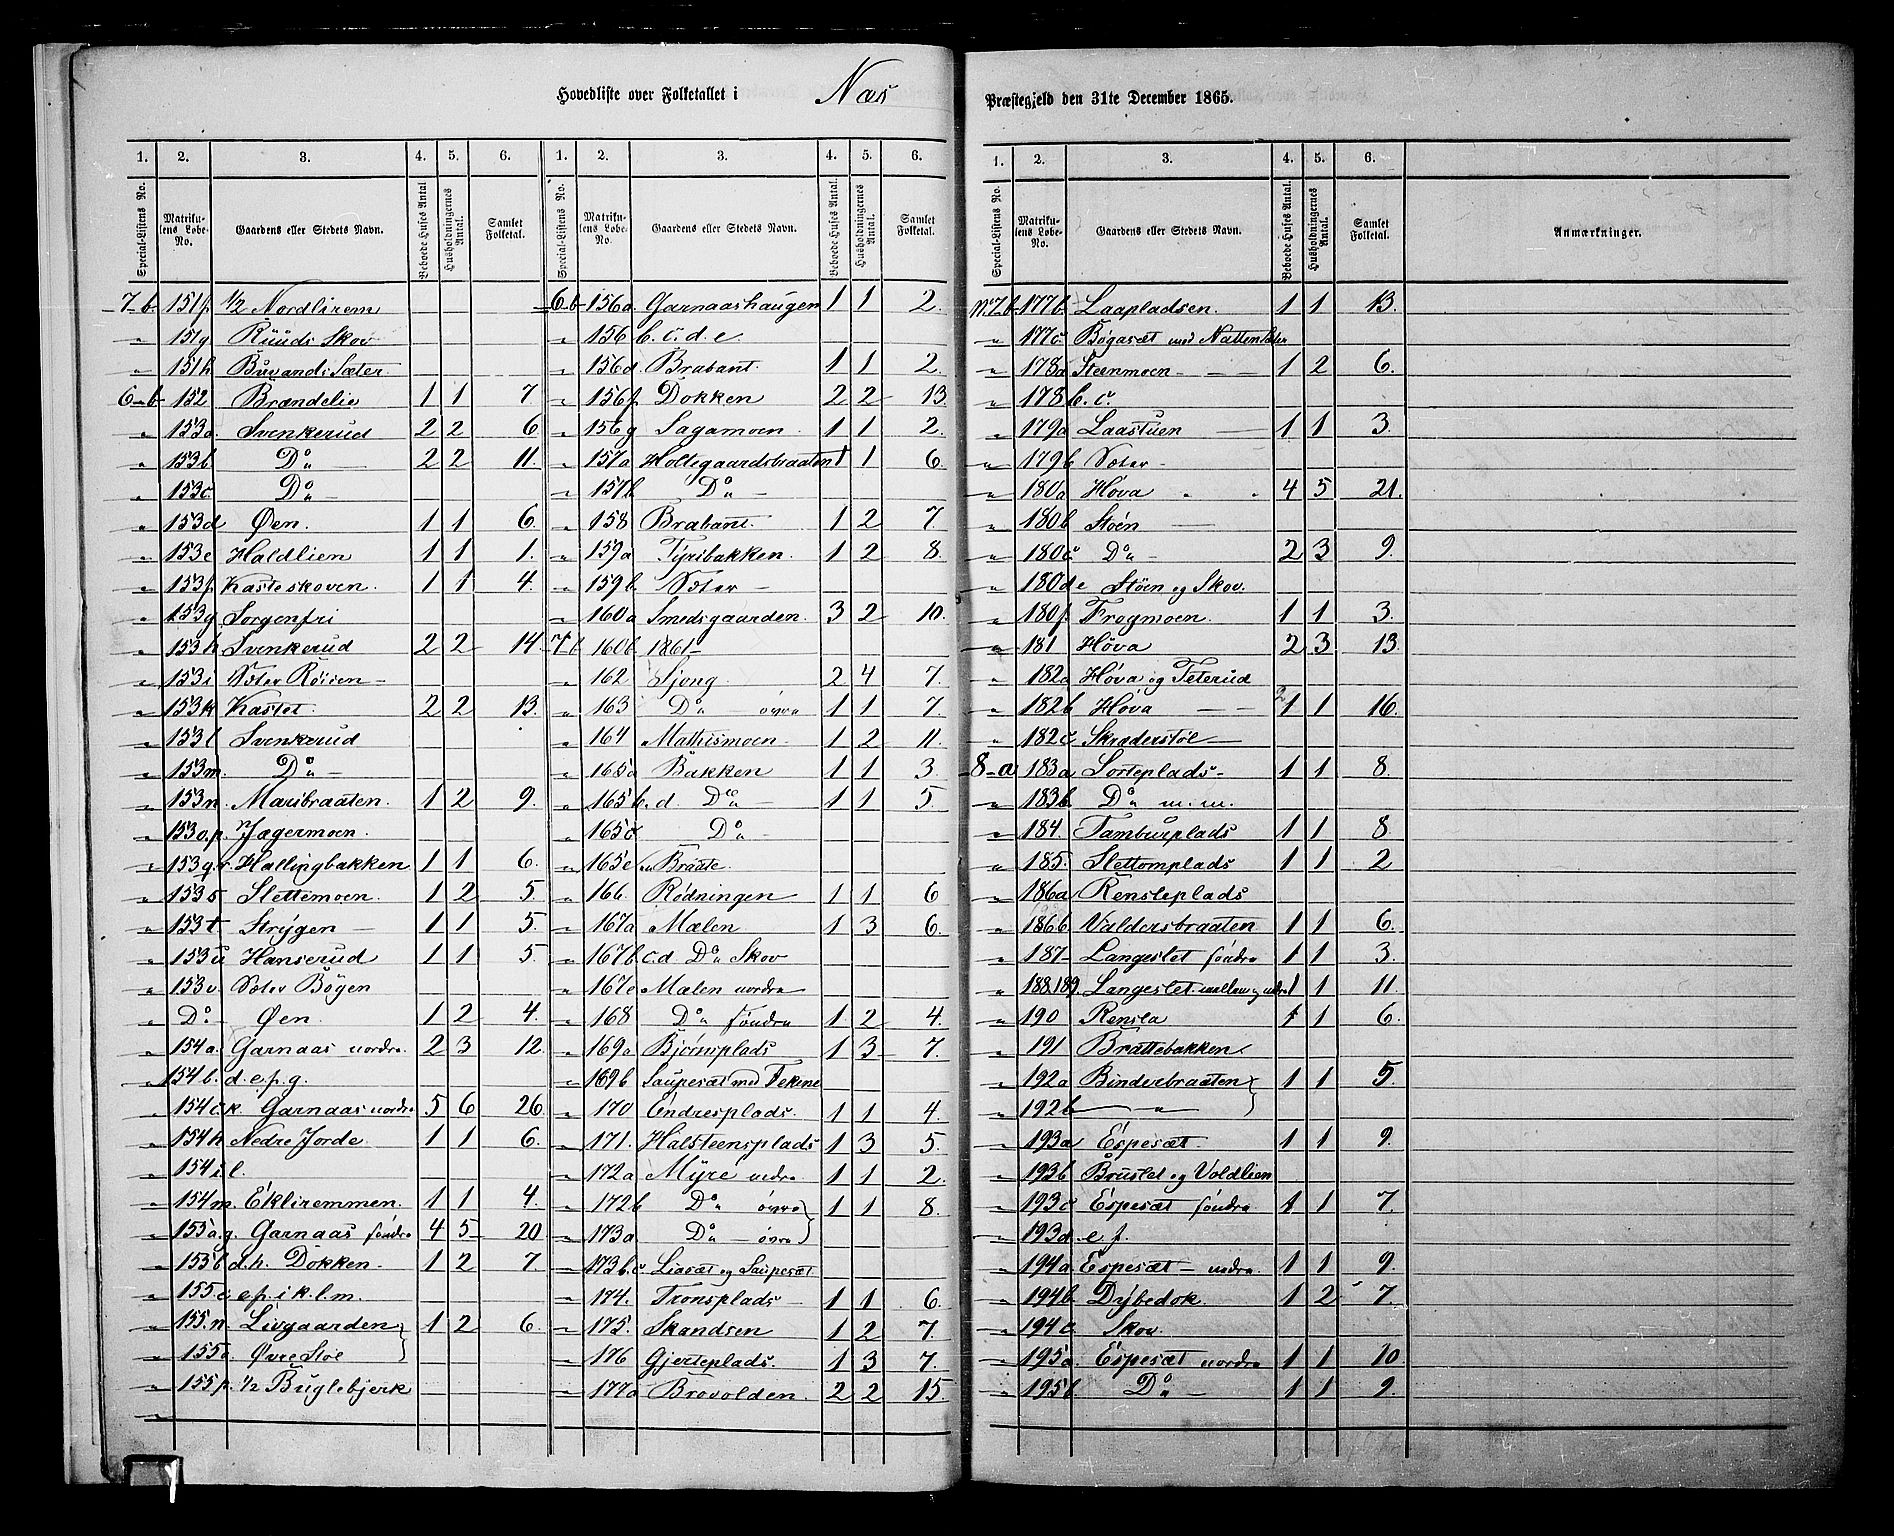 Hovedliste over Folketallet i Næs Præstegjeld den 31te December 1865.
1. 2. 3. 4. 5. 6. 1. 2. 3. 4. 5. 6.
Special-Listens No. Matrikulens Løbe-No. Gaardens eller Stedets Navn. Beboede Huses Antal Husholdningernes Antal. Samlet Folketal. Special-Listens No. Matrikulens Løbe-No. Gaardens eller Stedets Navn. Beboede Huses Antal. Husholdningernes Antal. Samlet Folketal.
7-b 151f ½ Nordlirem
" 151g Ruuds Skov
" 151h Buvandi Sæter
6-b 152 Brændelie 1 1 7
" 153a. Svenkerud 2 2 6
" 153b Do 2 2 11.
" 153c Do
" 153d Øen. 1 1 6.
" 153e Haldlien 1 1 1.
" 153f Kasteskoven. 1 1 4.
" 153g Sorgenfri
" 153h Svenkerud 2 2 14
" 153i Sæter Röisen
" 153k Kastet. 2 2 13.
" 153l Svenkerud
" 153m. Do
" 153n. Maribraaten. 1 2 9.
" 153o.p. Jægermoen.
" 153q.r. Hallingbakken 1 1 6.
" 153s Slettemoen. 1 2 5.
" 153t Strygen 1 1 5.
" 153u Hanserud 1 1 5.
" 153v. Sæter Bögen
" Do Øen. 1 2 4.
" 154a. Garnaas nordre 2 3 12.
" 154b. d.e.f.g.
" 154c.k. Garnaas nordre 5 6 26.
" 154h Nedre Jorde 1 1 6.
" 154i l.
" 154m. Ekliremmen. 1 1 4.
" 155a.g. Garnaas søndre 4 5 20
" 155b d.h. Dokken 1 2 7.
" 155c e.f.i.k.l.m.
" 155.n. Livgaarden 1 2 6.
" 155o. Øvre Støl
" 155p. ½ Buglebjerk
6-b 156a. Garnaashaugen 1 1 2.
" 156 b.c.d.e
" 156d Brabant. 1 1 2.
" 156f Dokken 2 2 13.
" 156g Sagamoen. 1 1 2.
" 157a Holtegaardsbraaten 1 1 6.
" 157b Do
" 158 Brabant. 1 2 7
" 159a Tyribakken. 1 2 8.
" 159b. Sæter
" 160a Smedsgaarden. 3 2 10.
7-b 160b 1861
" 162 Sjong 2 4 7.
" 163 Do øvre 1 1 7.
" 164 Mathismoen 1 2 11.
" 165a Bakken 1 1 3.
" 165b. d. Do 1 1 5.
" 165c. Do
" 165e Braate
" 166 Rødningen 1 1 6
" 167a Mælen 1 3 6.
" 167b c.d. Do Skov
" 167e Mælen nordre
" 168 Do søndre 1 2 4.
" 169a Bjørnsplads 1 3 7.
" 169b Saupesæt med Tekene
" 170 Endresplads. 1 1 4.
" 171. Halsteensplads 1 3 5.
" 172a Myre nedre 1 1 2.
" 172b Do øvre 1 1 8.
" 173a Do øvre
" 173b.c. Liasæt og Saupesæt
" 174. Tronsplads 1 1 6.
" 175. Skandsen 1 2 7.
" 176 Gjerteplads. 1 3 7.
" 177a Brovolden 2 2 15.
1. 2. 3. 4. 5. 6.
Special-Listens No. Matrikulens Løbe-No. Gaardens eller Stedets Navn. Beboede Huses Antal. Husholdningernes Antal. Samlet Folketal. Anmærkninger.
No. 7b 177b. Laapladsen. 1 1 13.
" 177c. Bøgasæt med
" 178a Steenmoen 1 2 6.
" 178 b.c.
" 179a Laastuen 1 1 3.
" 179b Sæter
" 180a Høva 4 5 21.
" 180b Støen
" 180c. Do 2 3 9.
" 180d e Støen og Skov.
" 180f. Frogmoen. 1 1 3.
" 181 Høva 2 3 13.
" 182a Høva og Teterud
" 182b Høva 2 1 1 16.
" 182c Skræderstøl
8-a 183a Sorteplads 1 1 8.
" 183b. Do m.m.
" 184. Tamburplads 1 1 8
" 185. Slettomplads 1 1 2
" 186a Rensleplads
" 186b Valdersbraaten 1 1 6.
" 187 Langeslet søndre 1 1 3.
" 188.189. Langeslet mellem og nedre 1 1 11.
" 190 Rensla 1 1 6.
" 191 Brattebakken
" 192a Binderbraaten 1 1 5.
" 192b "
" 193a Espesæt. 1 1 9.
" 193b Bruslet og Voldlien
" 193c Espesæt søndre 1 1 7.
" 193d. e f.
" 194a. Espesæt nedre. 1 1 9.
" 194b. Dybedok. 1 2 7.
" 194c. Skov.
" 195a. Espesæt nordre 1 1 10.
" 195b. Do 1 1 9.